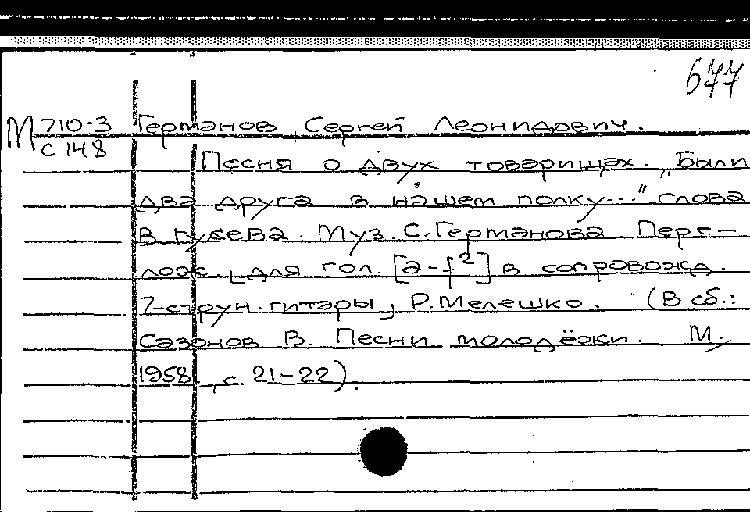 677
М 710-3 Германов Сергей Леонидович.
С 148
Песня о двух товарищах. „Были
два друга в нашем полку..." слова
В. Гусева. Муз. С. Германова. Пере-
лож. [для гол. [a-f²] в сопровожд.
7-струн. гитары, Р. Мелешко. (В сб.:
Сазонов В. Песни молодёжи. М.,
1958, с. 21-22).